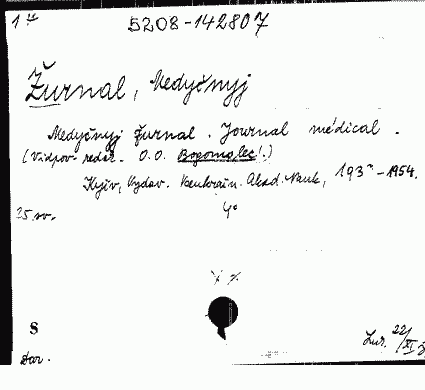 5208-142807
Žurnal, Medyčnyj
Medyčnyj žurnal. Journal médical.
(Vidpov. redak. O.O. Bogomolec'.)
Kyjiv, Vydav. Akad. Nauk, 193 -1954.
25 sv. 4°
S
dar. 22/XI